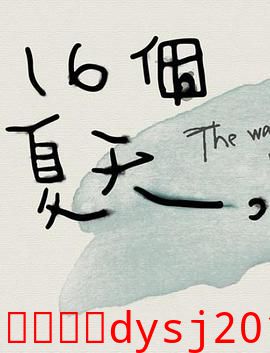 16個
夏天，
The wa
dysj20